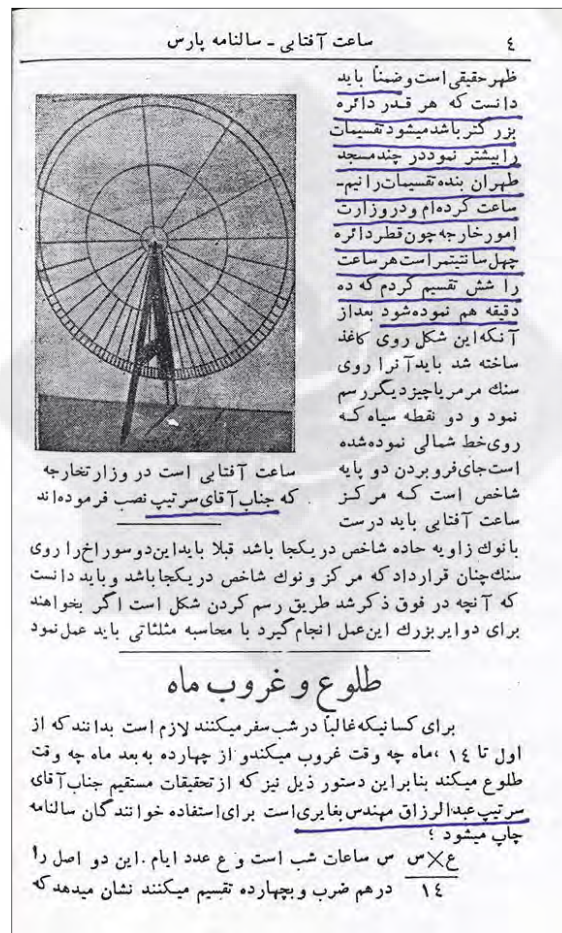 ٤ ساعت آفتابی ـ سالنامه پارس
ظهر حقیقی است و ضمناً باید
دانست که هر قدر دائره
بزرگتر باشد میشود تقسیمات
را بیشتر نمود در چند مسجد
طهران بنده تقسیمات را نیم‌ـ
ساعت کرده‌ام و در وزارت
امور خارجه چون قطر دائره
چهل سانتیتمر است هر ساعت
را شش تقسیم کردم که ده
دقیقه هم نموده شود بعد از
آنکه این شکل روی کاغذ
ساخته شد باید آنرا روی
سنك مرمر یا چیز دیگر رسم
نمود و دو نقطه سیاه که
روی خط شمالی نموده شده
است جای فرو بردن دو پایه
شاخص است که مرکز
ساعت آفتابی باید درست
ساعت آفتابی است در وزارتخارجه
که جناب آقای سرتیپ نصب فرموده‌اند
با نوك زاویه حاده شاخص در یکجا باشد قبلا باید این دو سوراخ را روی
سنك چنان قرار داد که مرکز و نوك شاخص در یکجا باشد و باید دانست
که آنچه در فوق ذکر شد طریق رسم کردن شکل است اگر بخواهند
برای دوایر بزرك این عمل انجام گیرد با محاسبه مثلثاتی باید عمل نمود
طلوع و غروب ماه
برای کسانیکه غالباً در شب سفر میکنند لازم است بدانند که از
اول تا ١٤ ،ماه چه وقت غروب میکند و از چهارده به بعد ماه چه وقت
طلوع میکند بنابر این دستور ذیل نیز که از تحقیقات مستقیم جناب آقای
سرتیپ عبدالرزاق مهندس بغایری است برای استفاده خوانندگان سالنامه
چاپ میشود ؛
ع×س س ساعات شب است و ع عدد ایام . این دو اصل را
١٤ در هم ضرب و بچهارده تقسیم میکنند نشان میدهد که